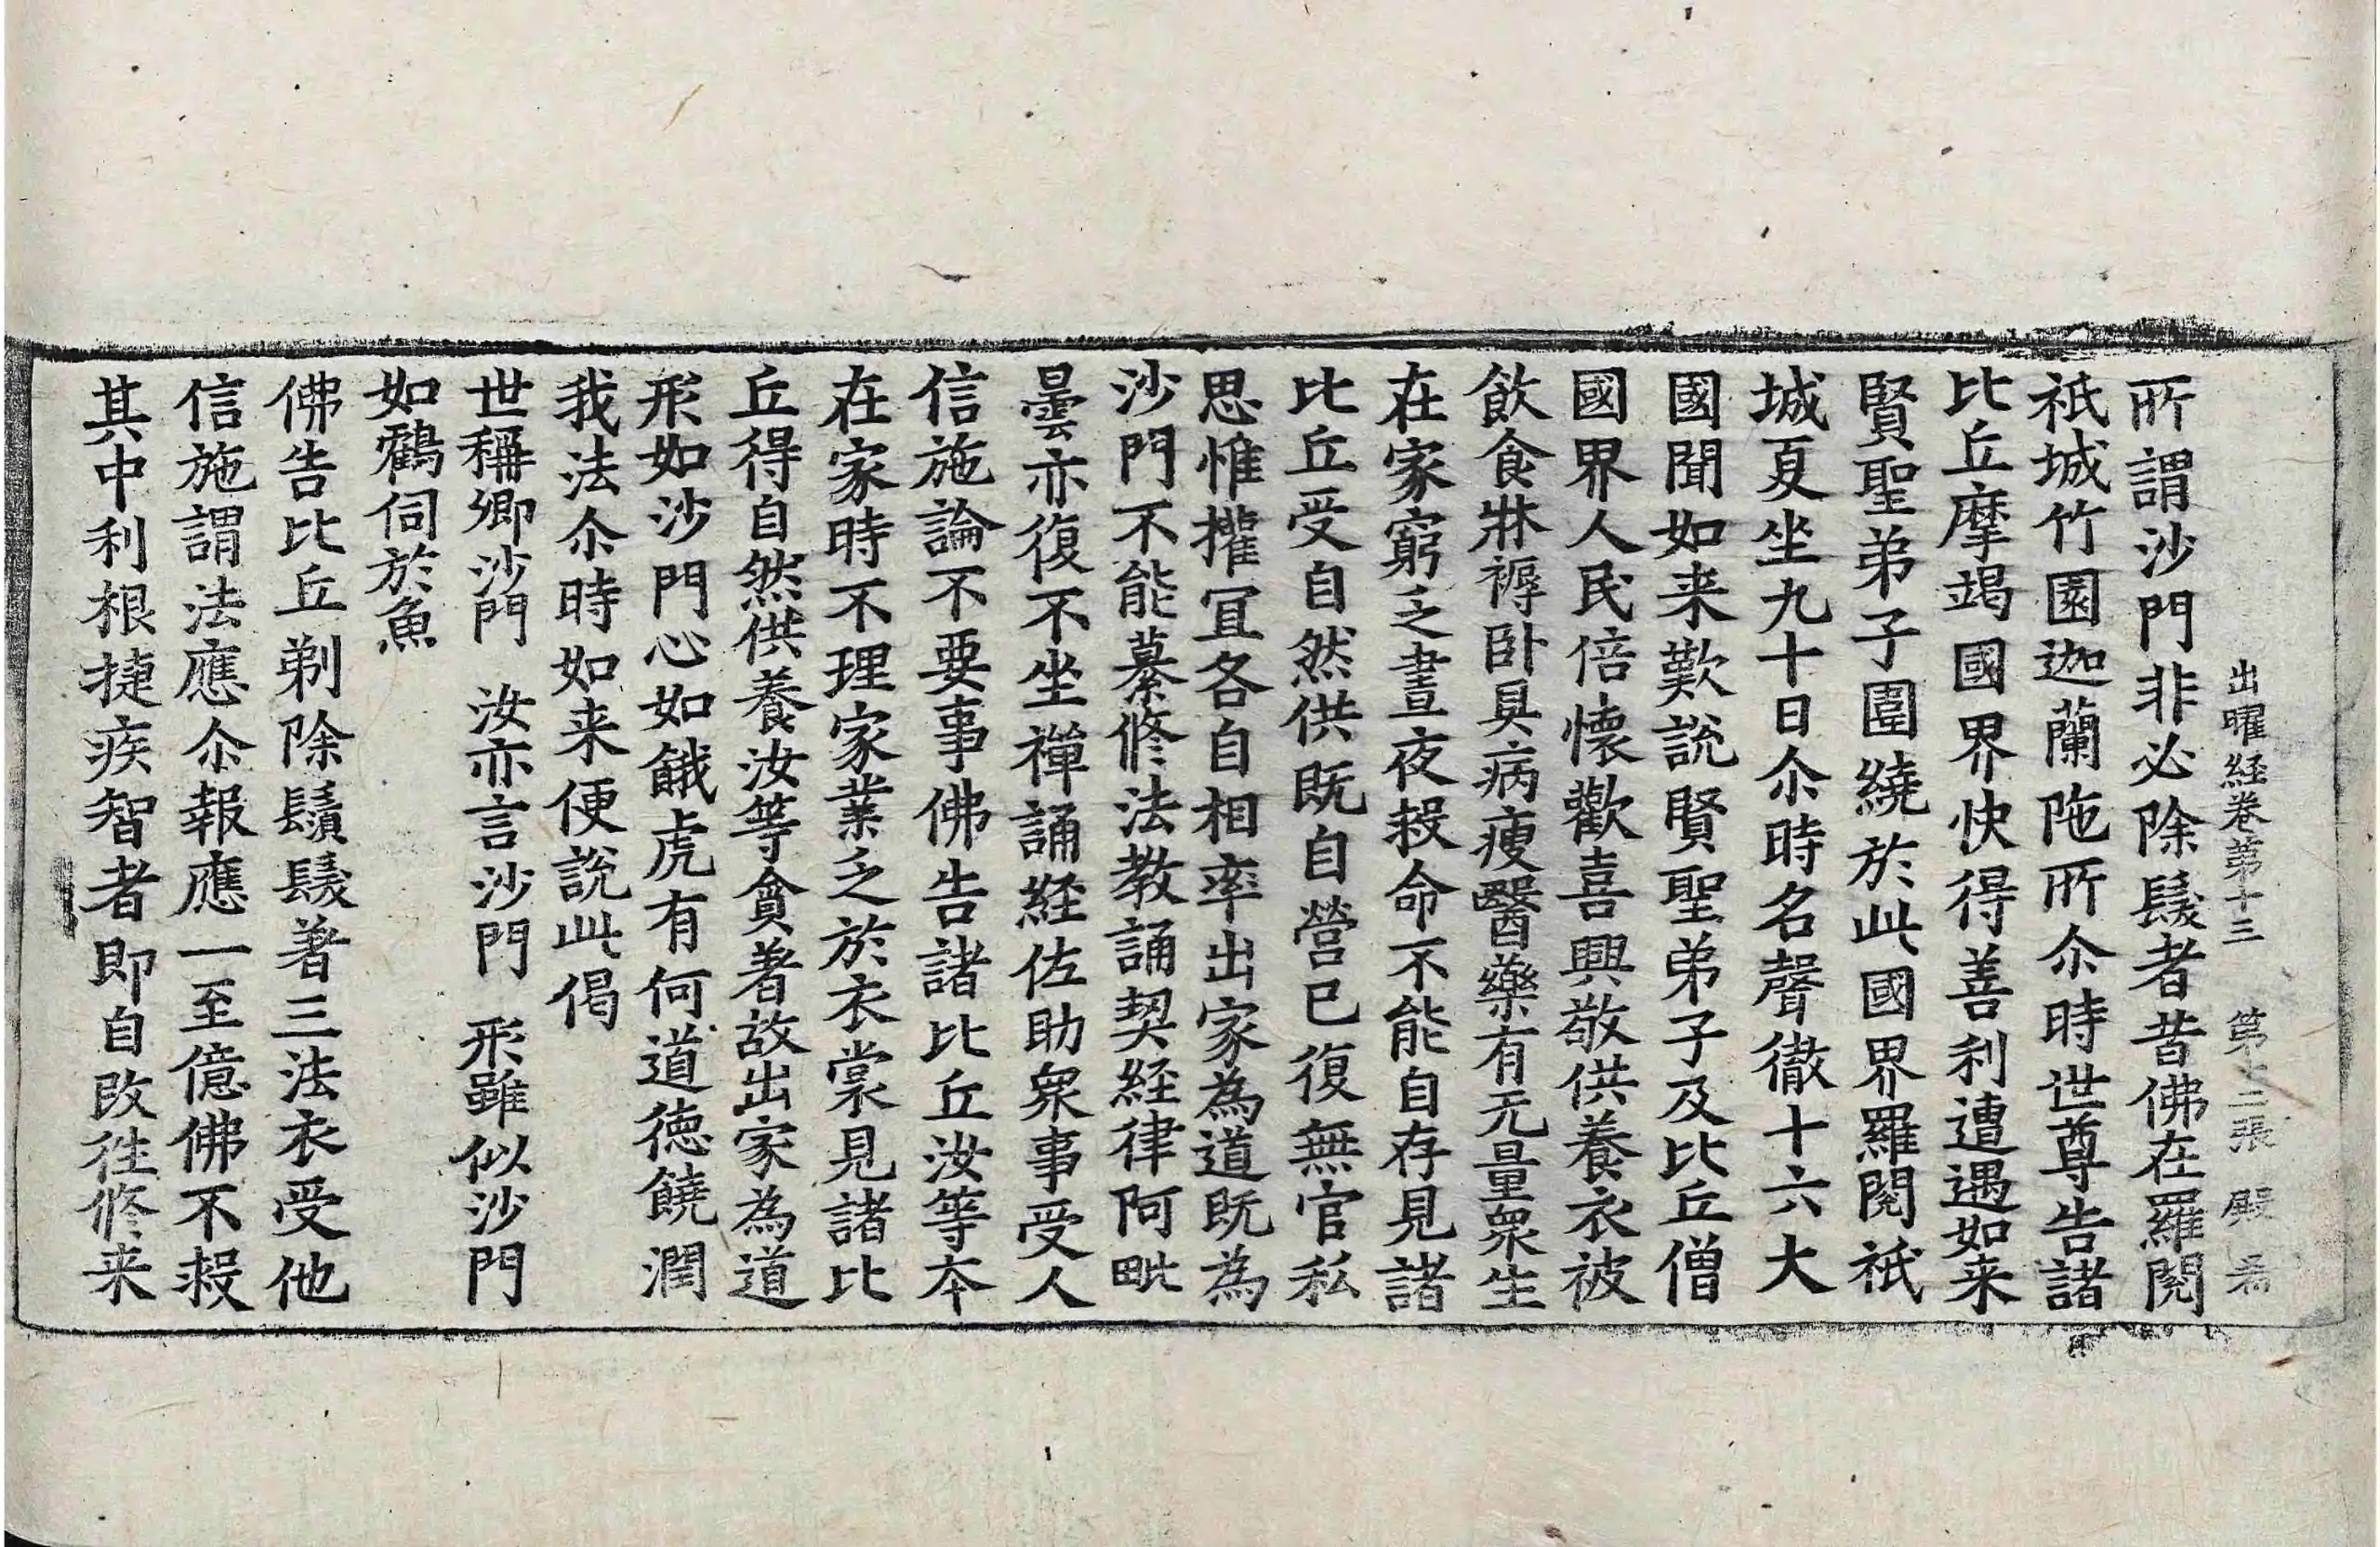 出曜経卷苐十三　苐十二張　殿
所謂沙門非必除䰂者昔佛在羅閱
祇城竹園迦蘭陁所尒時世尊告諸
比丘摩竭國界快得善利遭遇如来
賢聖弟子圍繞於此國界羅閱祇
城夏坐九十日尒時名聲徹十六大
國聞如来歎說賢聖弟子及比丘僧
國界人民倍懷歡喜興敬供養衣被
飲食牀褥卧具病瘦醫藥有无量衆生
在家窮乏晝夜救命不能自存見諸
比丘受自然供既自營已復無官私
思惟權冝各自相率出家為道既為
沙門不能纂修法教誦契経律阿毗
曇亦復不坐禪誦経佐助衆事受人
信施論不要事佛告諸比丘汝等夲
在家時不理家業乏於衣裳見諸比
丘得自然供養汝等貪著故出家為道
形如沙門心如餓虎有何道德饒潤
我法尒時如来便說此偈
世稱卿沙門　汝亦言沙門　形雖似沙門
如鸛伺於魚
佛告比丘剃除鬚䰂著三法衣受他
信施謂法應尒報應一至億佛不救
其中利根捷疾智者即自改往修来